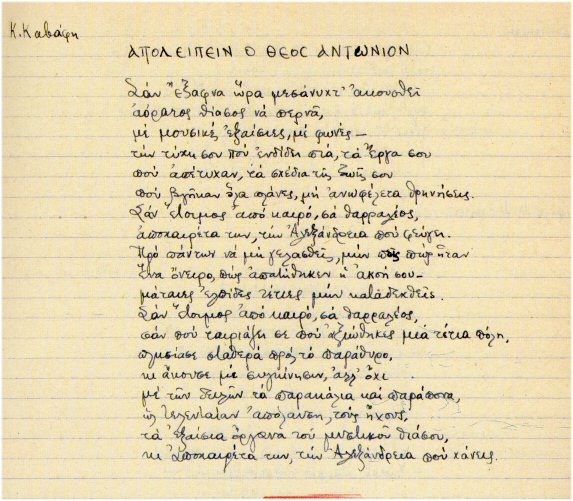 Κ. Καβάφη
ΑΠΟΛΕΙΠΕΙΝ Ο ΘΕΟΣ ΑΝΤΩΝΙΟΝ
Σὰν ἔξαφνα ὥρα μεσάνυχτ' ἀκουσθεῖ
ἀόρατος θίασος νὰ περνᾶ,
μὲ μουσικὲς ἐξαίσιες, μὲ φωνὲς —
τὴν τύχη σου ποὺ ἐνδίδει πιά, τὰ ἔργα σου
ποὺ ἀπέτυχαν, τὰ σχέδια τῆς ζωῆς σου
ποὺ βγῆκαν ὅλα πλάνες, μὴ ἀνωφέλετα θρηνήσεις.
Σὰν ἕτοιμος ἀπὸ καιρό, σὰ θαρραλέος,
ἀποχαιρέτα την, τὴν Ἀλεξάνδρεια ποὺ φεύγει.
Πρὸ πάντων νὰ μὴ γελασθεῖς, μὴν πεῖς πὼς ἦταν
ἕνα ὄνειρο, πὼς ἀπατήθηκεν ἡ ἀκοή σου —
μάταιες ἐλπίδες τέτοιες μὴν καταδεχθεῖς.
Σὰν ἕτοιμος ἀπὸ καιρό, σὰ θαρραλέος,
σὰν ποὺ ταιριάζει σε ποὺ ἀξιώθηκες μιὰ τέτοια πόλη,
πλησίασε σταθερὰ πρὸς τὸ παράθυρο,
κι ἄκουσε μὲ συγκίνησιν, ἀλλ' ὄχι
μὲ τῶν δειλῶν τὰ παρακάλια καὶ παράπονα,
ὡς τελευταία ἀπόλαυση, τοὺς ἤχους,
τὰ ἐξαίσια ὄργανα τοῦ μυστικοῦ θιάσου,
κι ἀποχαιρέτα την, τὴν Ἀλεξάνδρεια ποὺ χάνεις.